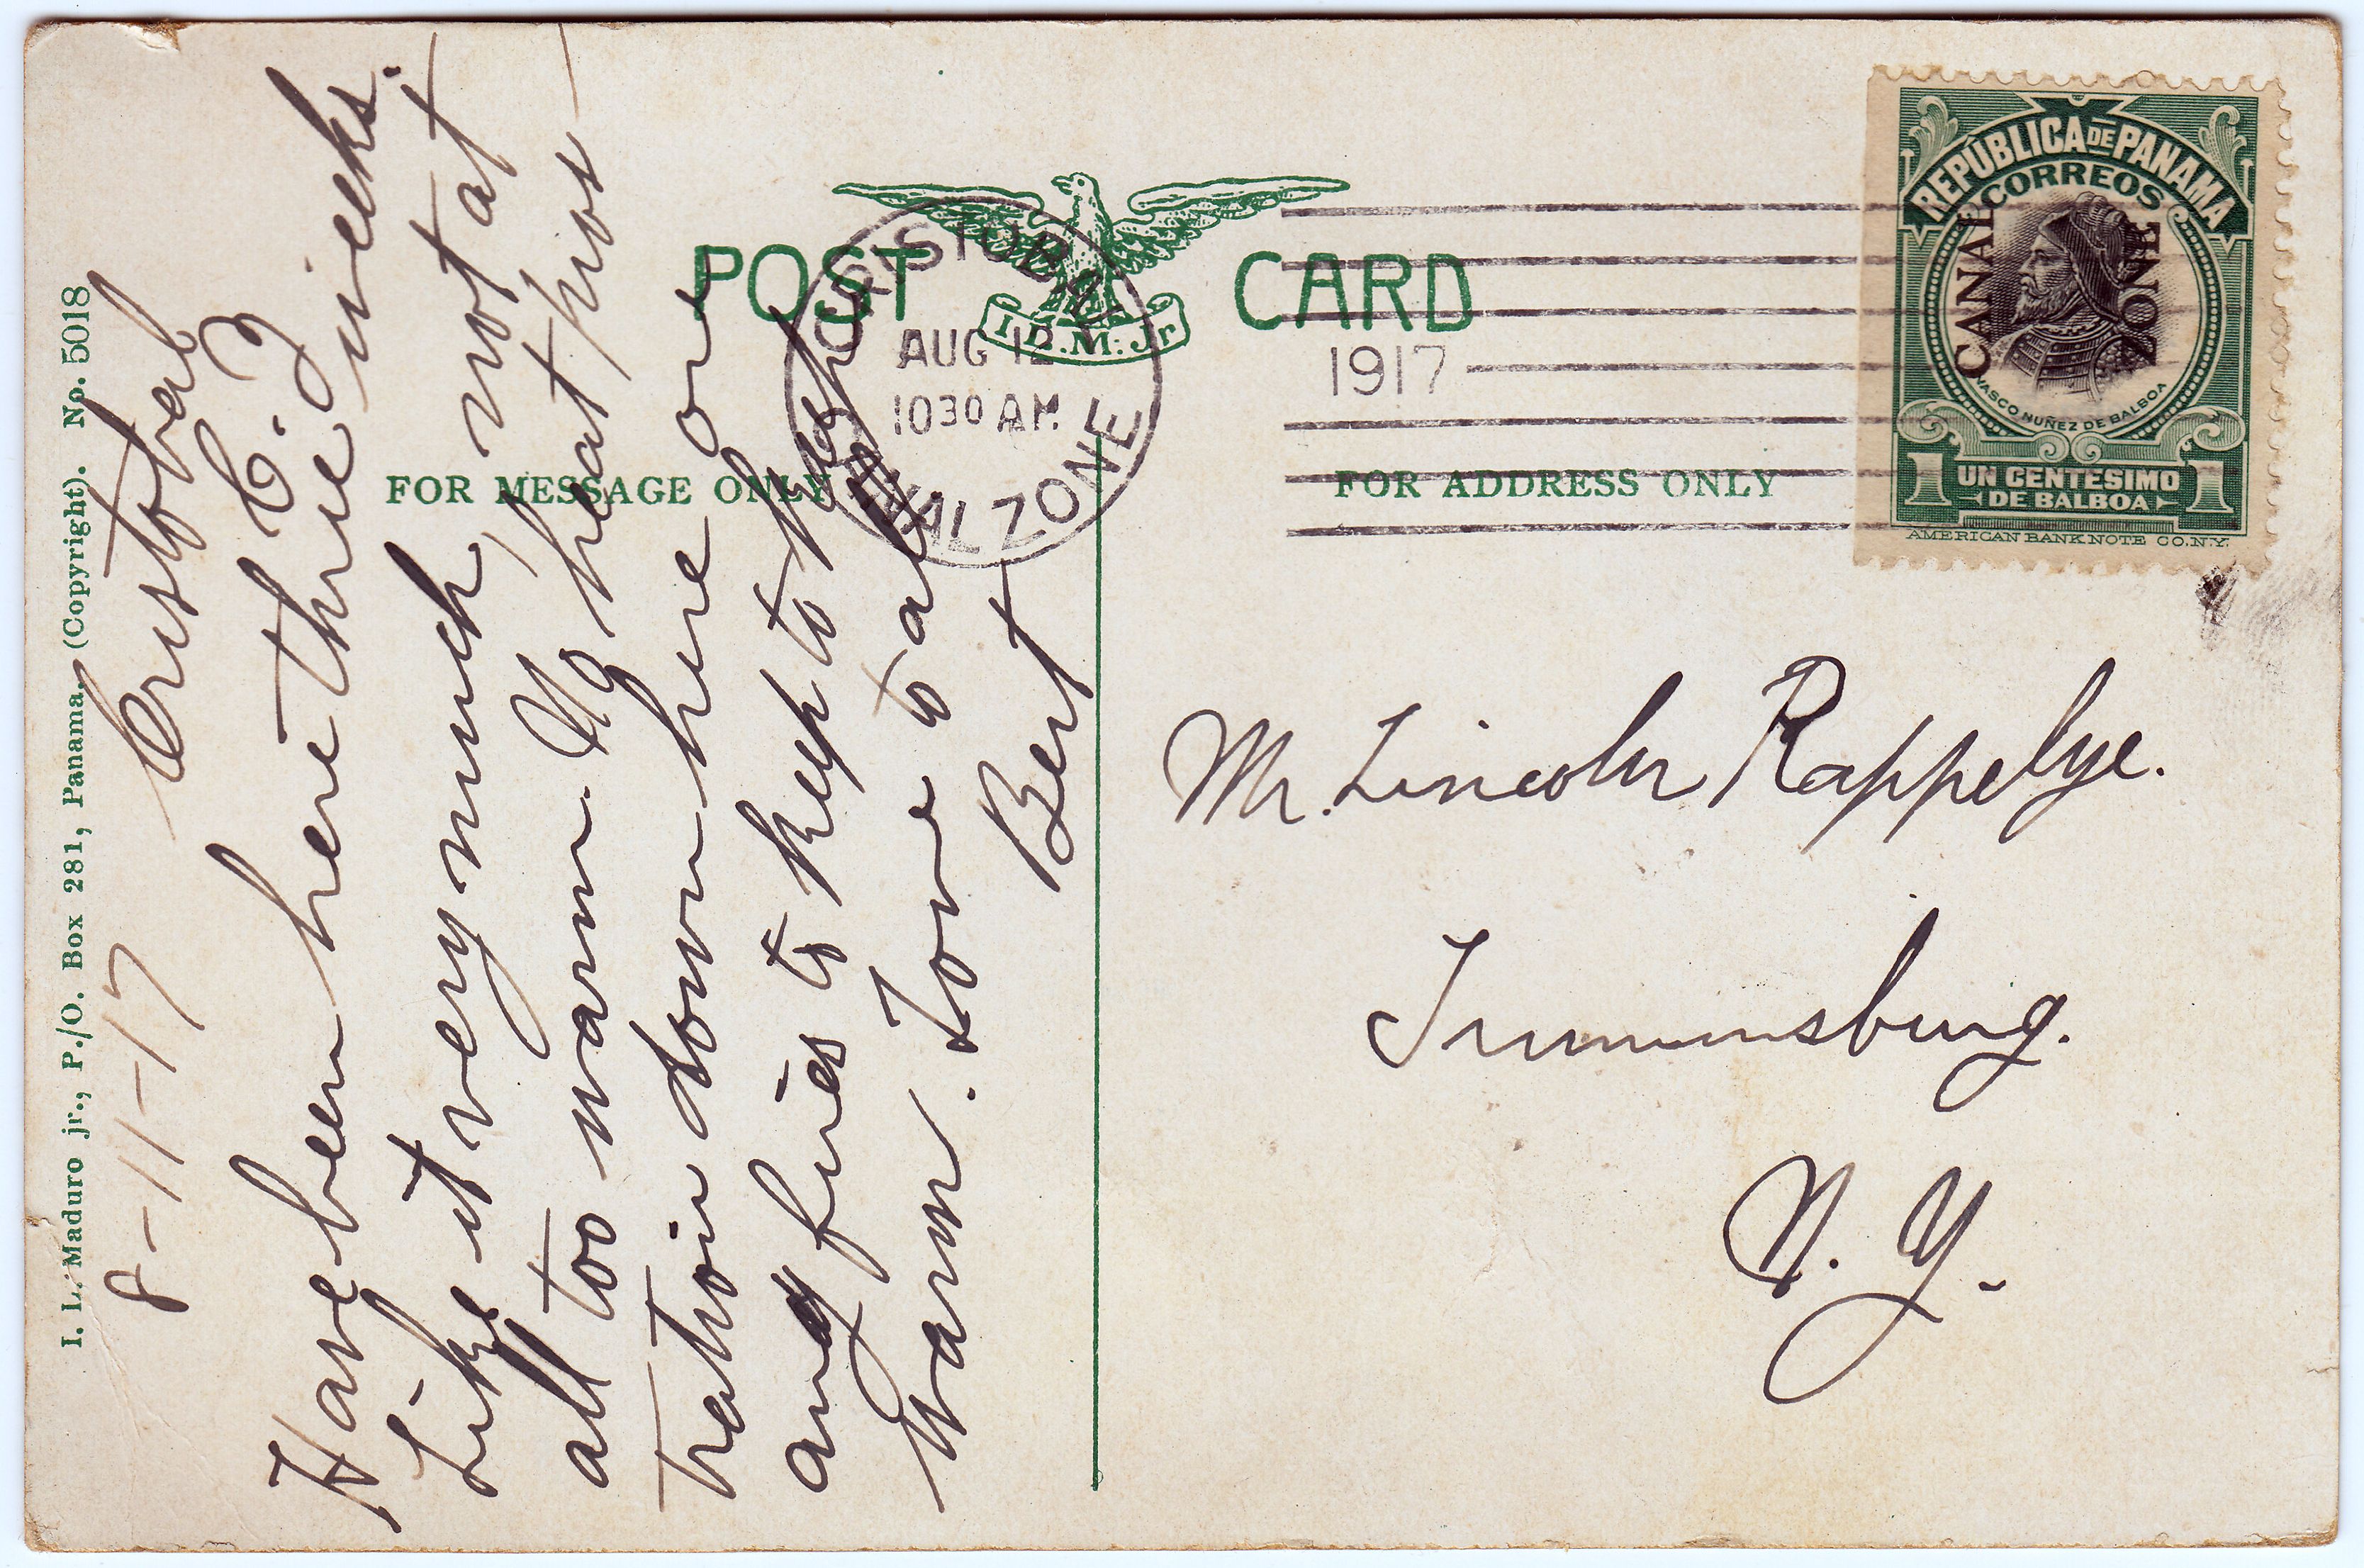 I. L. Maduro jr., P./O. Box 281, Panama, (Copyright). No. 5018
8-11-17 Cristobal
C.Z.
Have been here three weeks.
Like it very much, not at
all too warm. No heat pros-
tration down here or
any fires to keep to keep
warm. Love to all
Bert
POST CARD
I. L. M: Jr
FOR MESSAGE ONLY
FOR ADDRESS ONLY
CRISTOBAL
AUG 12
1030 AM
1917
CANAL ZONE
REPÚBLICA DE PANAMA
CORREOS
CANAL ZONE
VASCO NUÑEZ DE BALBOA
1 UN CENTESIMO 1
DE BALBOA
AMERICAN BANK NOTE CO. N.Y.
Mr. Lincoln Rappelye.
Trumansburg.
N. Y.